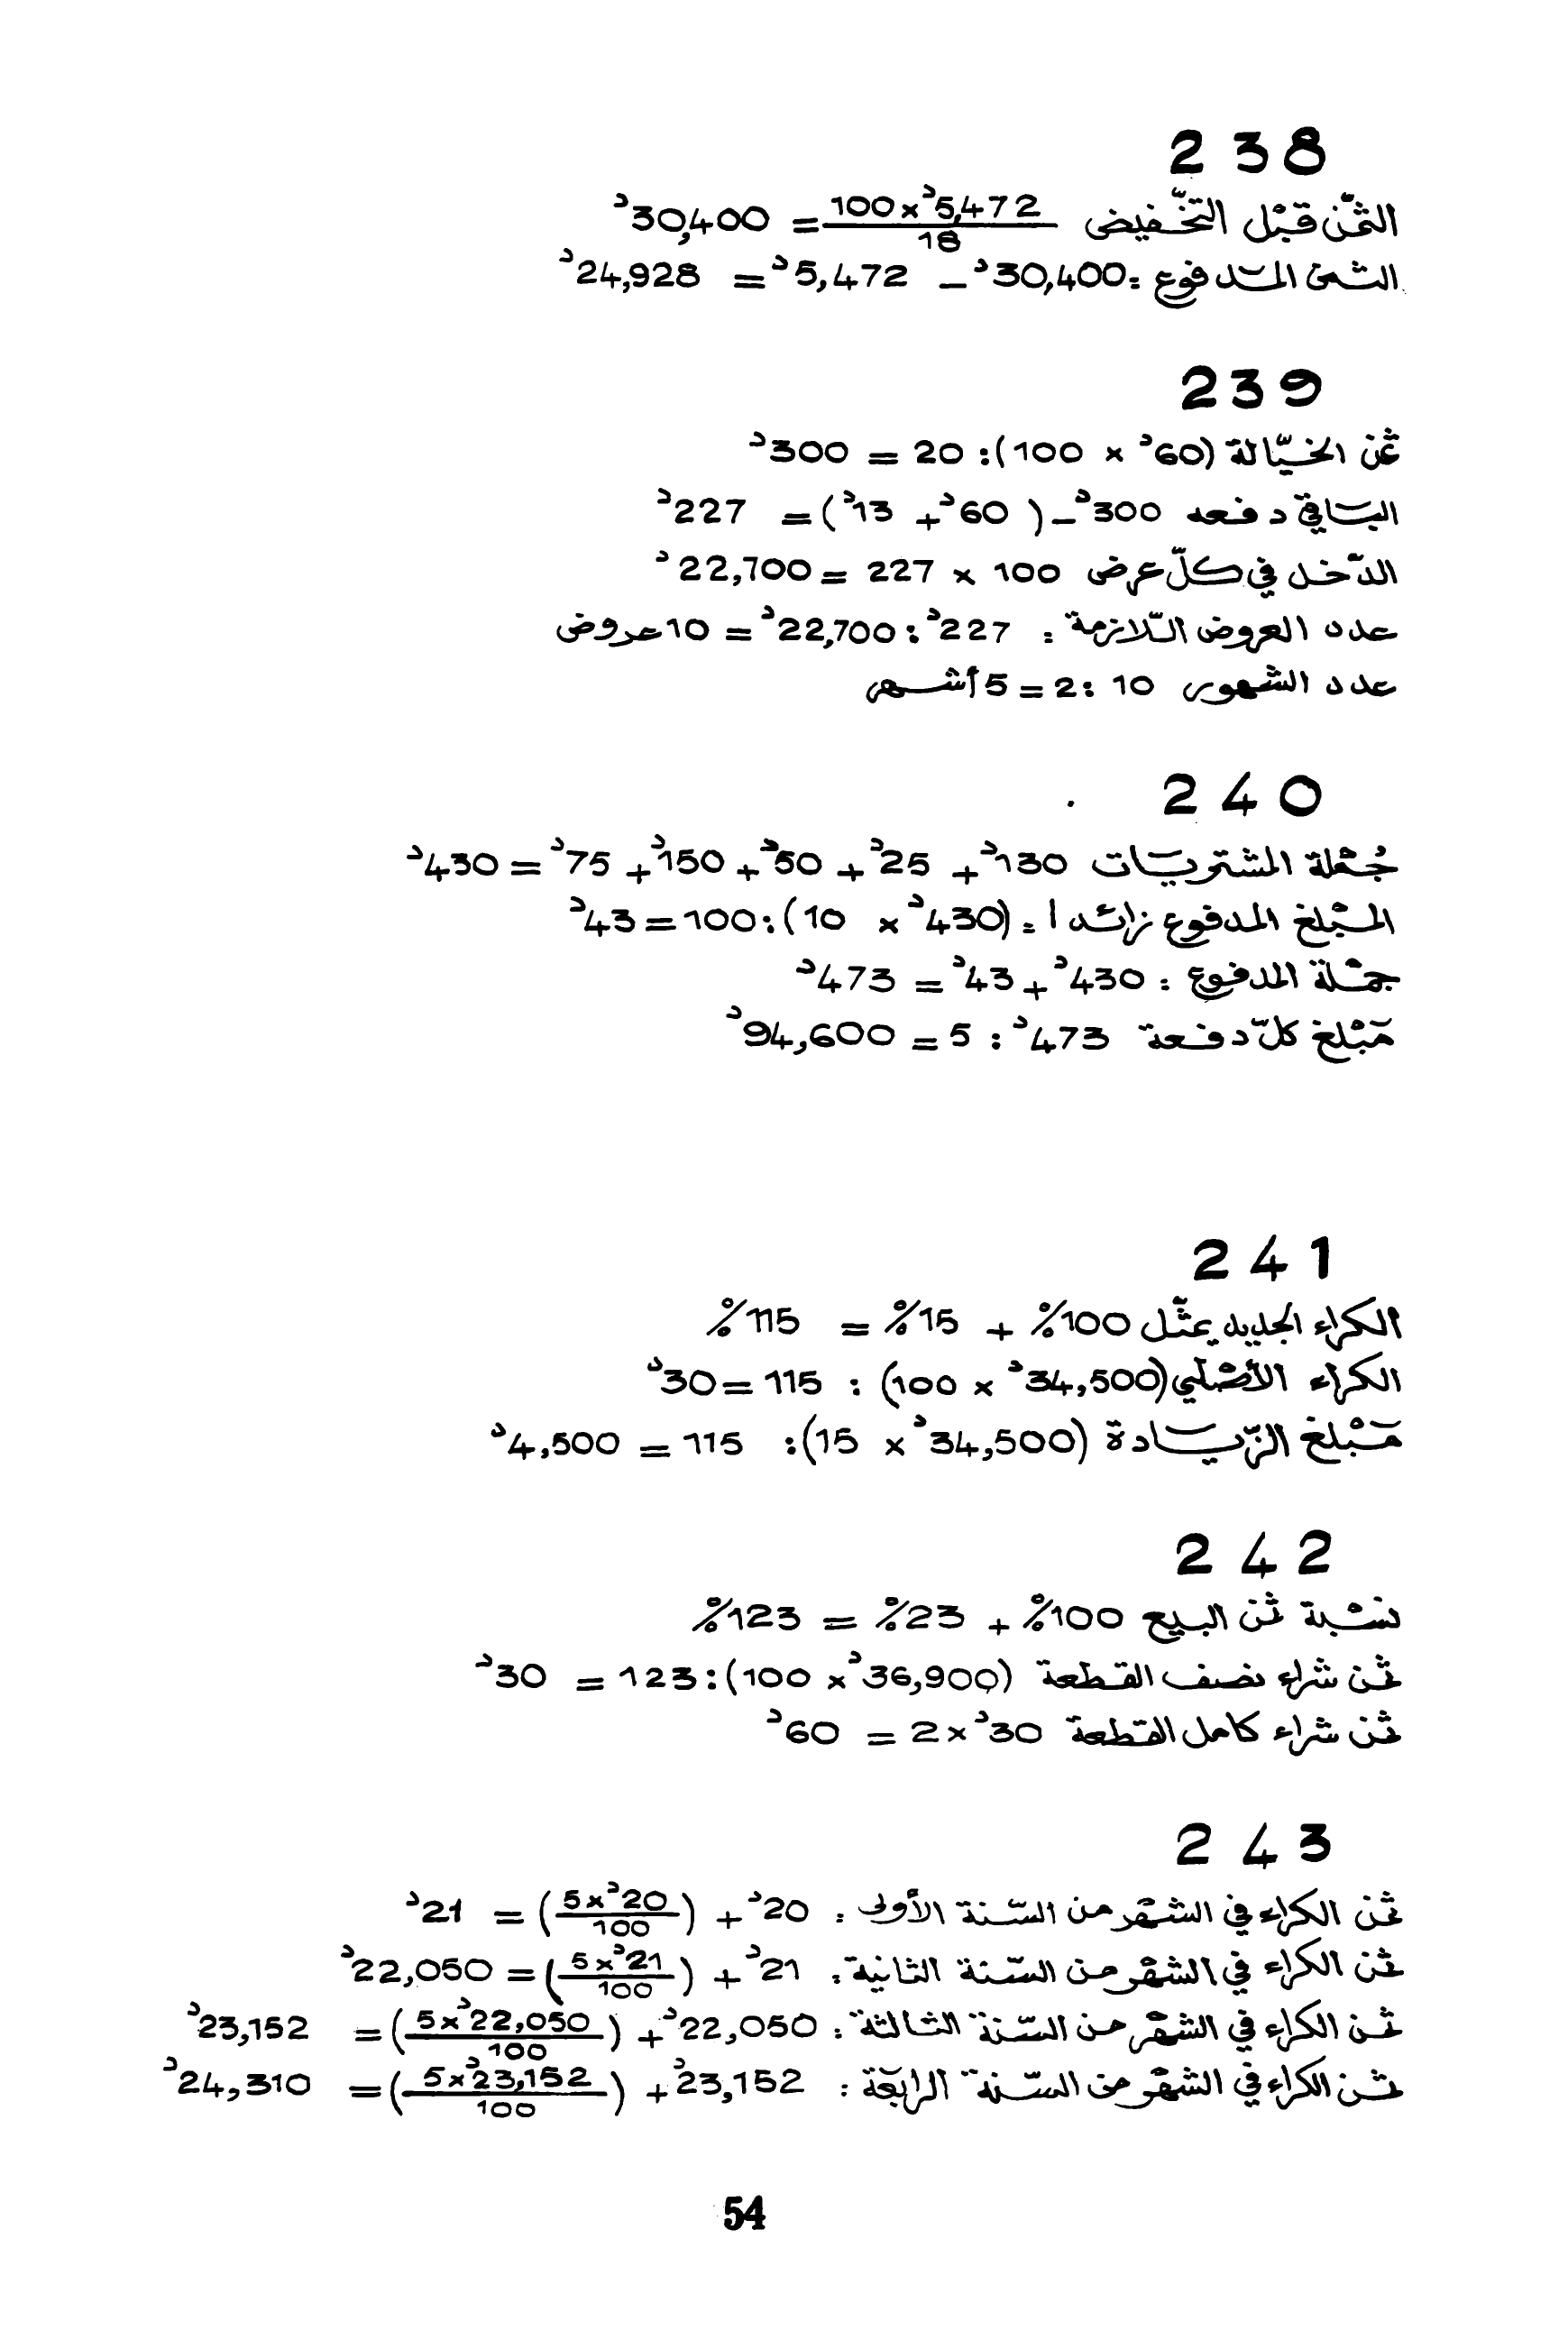 238
الثمن قبل التخفيض 100x5,472د / 18 = 30,400د
الثمن المدفوع : 30,400د - 5,472د = 24,928د
239
ثمن الخيّالة (60د x 100) : 20 = 300د
الباقي دفعه 300د - ( 60د + 13د ) = 227د
الدّخل في كلّ عرض 100 x 227 = 22,700د
عدد العروض اللّازمة : 227د : 22,700د = 10 عروض
عدد الشهور 10 : 2 = 5 أشهر
240
جُمْلة المشتريات 130د + 25د + 50د + 150د + 75د = 430د
المبْلغ المدفوع زائدا : (430د x 10) : 100 = 43د
جمْلة المدفوع : 430د + 43د = 473د
مَبْلغ كلّ دفعة 473د : 5 = 94,600د
241
الكراء الجديد يمثّل 100% + 15% = 115%
الكراء الأصْلي (34,500د x 100) : 115 = 30د
مَبْلغ الزّيادة (34,500د x 15) : 115 = 4,500د
242
نسْبة ثمن البيع 100% + 23% = 123%
ثمن شراء نصف القطعة (36,900د x 100) : 123 = 30د
ثمن شراء كامل القطعة 30د x 2 = 60د
243
ثمن الكراء في الشهر من السّنة الأولى : 20د + (5x20د / 100) = 21د
ثمن الكراء في الشهر من السّنة الثانية : 21د + (5x21د / 100) = 22,050د
ثمن الكراء في الشهر من السّنة الثالثة : 22,050د + (5x22,050د / 100) = 23,152د
ثمن الكراء في الشهر من السّنة الرابعة : 23,152د + (5x23,152د / 100) = 24,310د
54